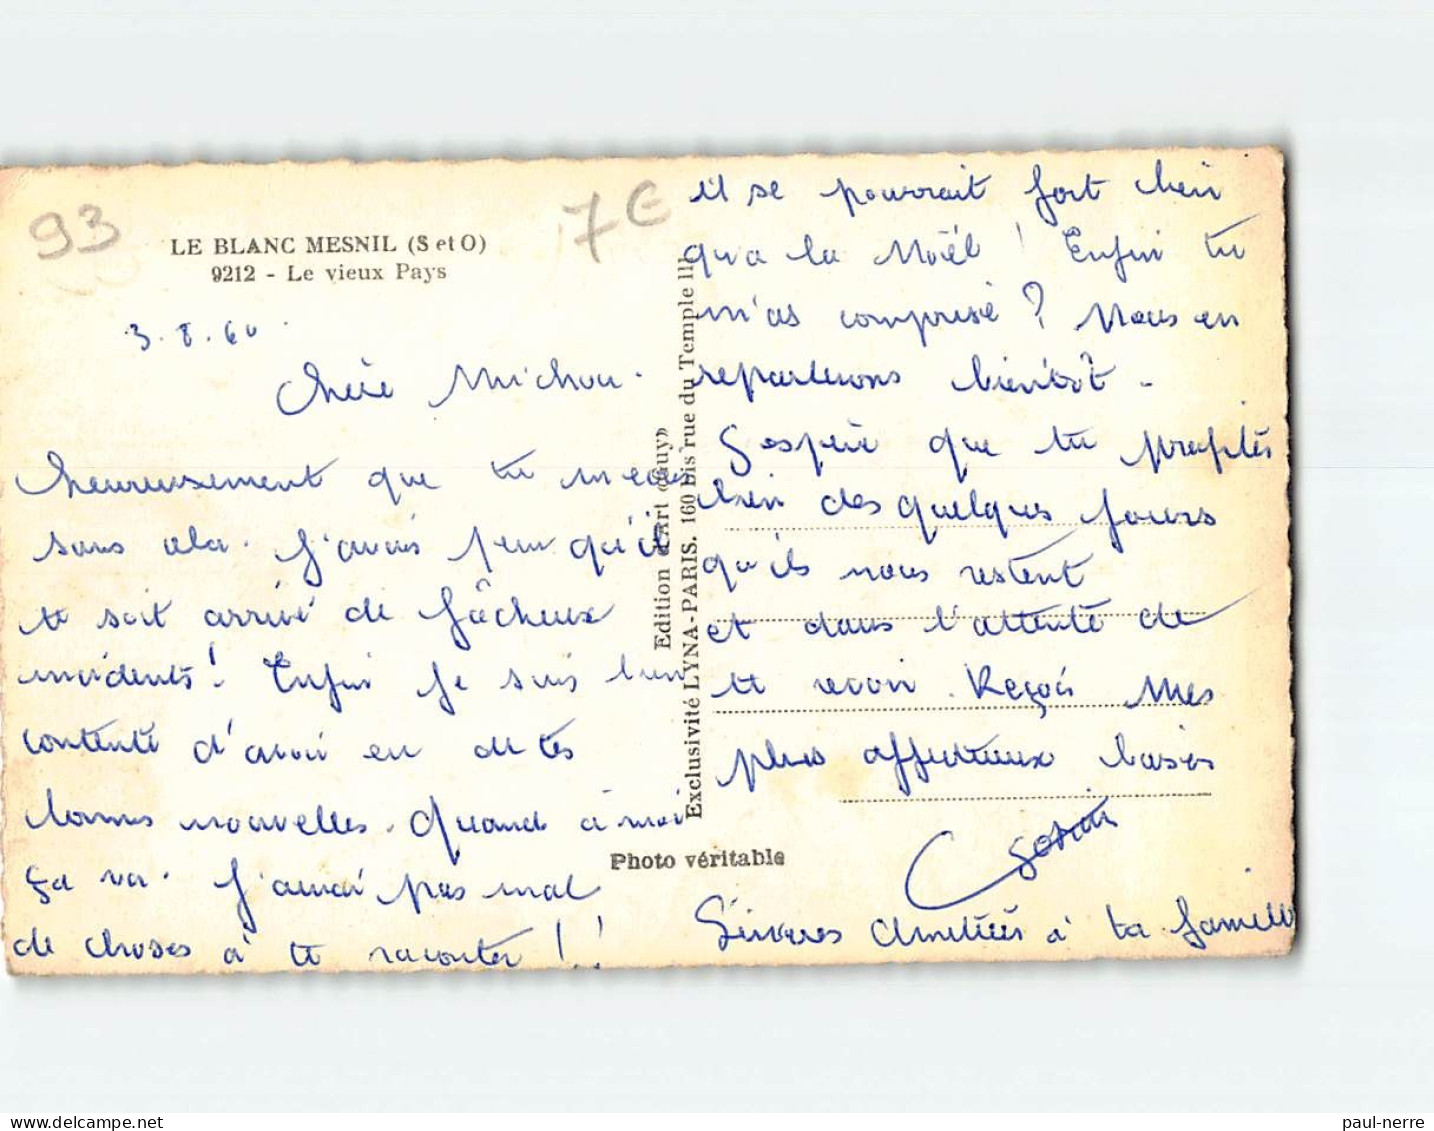 93
7€
LE BLANC MESNIL (S et O)
9212 - Le vieux Pays
3.8.60.
Chère Michou.
heureusement que tu m'écris
sans ola. J'avais peur qu'il
te soit arrivé de fâcheux
incidents! Enfin je suis bien
contente d'avoir eu de tes
bonnes nouvelles. Quand à moi
ça va. J'aurai pas mal
de choses à te raconter!!
Edition d'Art «Guy»
Exclusivité LYNA-PARIS. 160 bis rue du Temple III
Photo véritable
il se pourrait fort bien
qu'a la Noël! Enfin tu
m'as comprise? Nous en
reparlerons bientôt -
J'espère que tu profites
bien des quelques jours
qu'ils nous restent
et dans l'attente de
te revoir. Reçois Mes
plus affectueux baisers
Sincères Amitiés à ta famille
paul-nerre